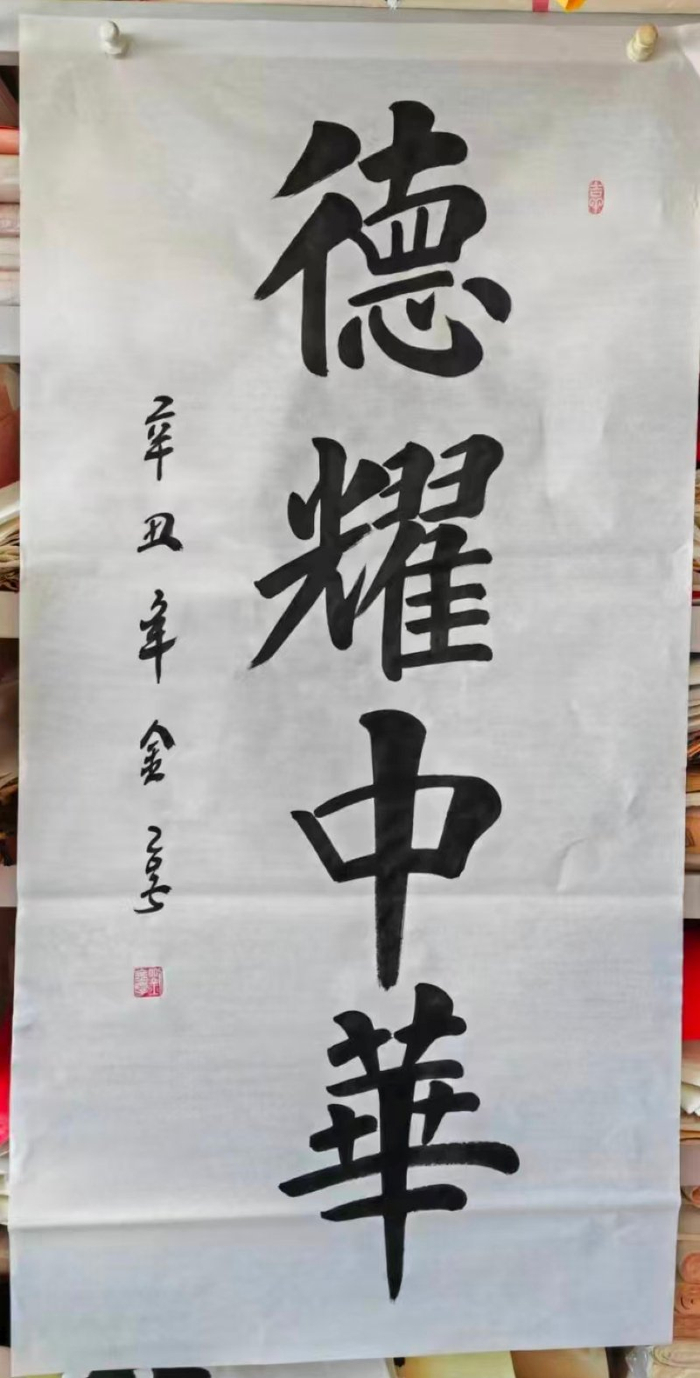 德耀中華
辛丑年金